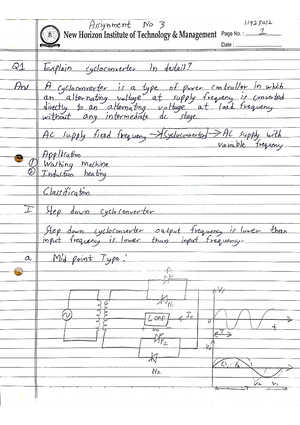 Assignment No 3
11925012
New Horizon Institute of Technology & Management
Page No. : 1
Date :
Q1 Explain cycloconverter In detail?
Ans A cycloconverter is a type of power controller in which
an alternating voltage at supply frequency is converted
directly to an alternating voltage at load frequency
without any intermediate dc stage.
AC supply fixed frequency → Cycloconverter → AC supply with
variable frequency
Application
① Washing machine
② Induction heating
Classification
I Step down cycloconverter
Step down cycloconverter output frequency is lower than
input frequency is lower than input frequency.
a Mid point Type :
P1
N1
LOAD
Io
Vo
P2
N2
t